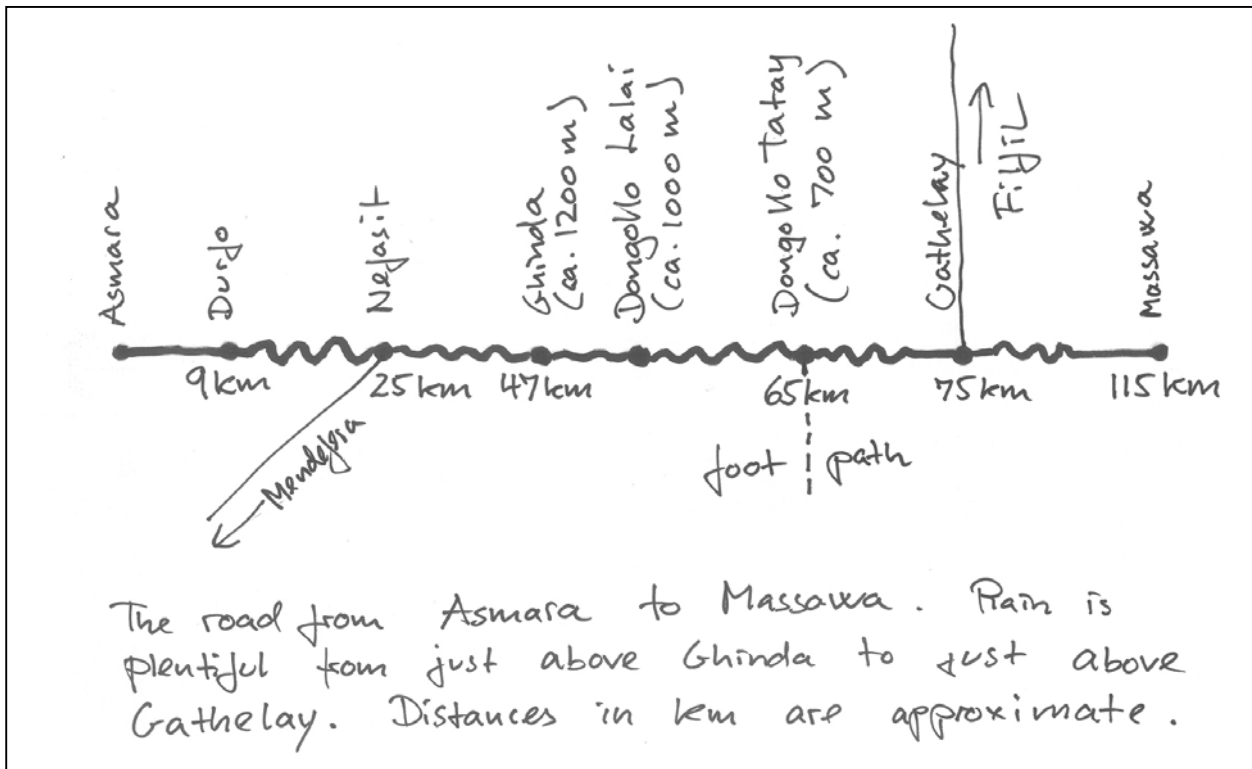 Asmara
Durfo
Nefasit
Ghinda
(ca. 1200 m)
Dongollo Lalai
(ca. 1000 m)
Dongollo Tatay
(ca. 700 m)
Gathelay
Filfil
Massawa
9km
25km
47km
65km
75km
115km
Mendefera
foot path
The road from Asmara to Massawa. Rain is
plentiful from just above Ghinda to just above
Gathelay. Distances in km are approximate.